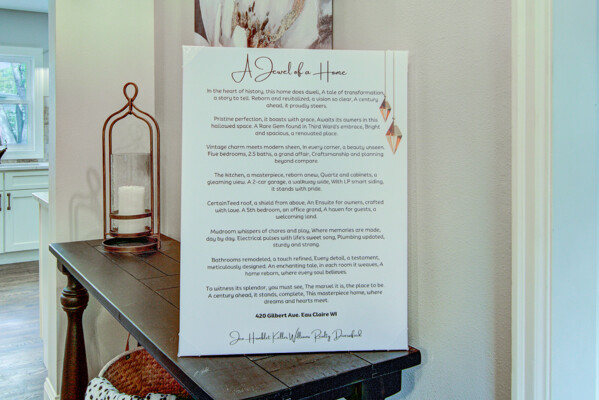 A Jewel of a Home
In the heart of history, this home does dwell, A tale of transformation,
a story to tell, Reborn and revitalized, a vision so clear, A century
ahead, it proudly steers.
Pristine perfection, it boasts with grace, Awaits its owners in this
hallowed space. A Rare Gem found in Third Ward's embrace, Bright
and spacious, a renovated place.
Vintage charm meets modern sheen, In every corner, a beauty unseen
Five bedrooms, 2.5 baths, a grand affair, Craftsmanship and planning
beyond compare.
The kitchen, a masterpiece, reborn anew, Quartz and cabinets, a
gleaming view. A 2-car garage, a walkway wide, With LP smart siding,
it stands with pride.
CertainTeed roof, a shield from above, An Ensuite for owners, crafted
with love. A 5th bedroom, an office grand, A haven for guests, a
welcoming land.
Mudroom whispers of chores and play, Where memories are made,
day by day. Electrical pulses with life's sweet song, Plumbing updated,
sturdy and strong.
Bathrooms remodeled, a touch refined, Every detail, a testament,
meticulously designed. An enchanting tale, in each room it weaves, A
home reborn, where every soul believes.
To witness its splendor, you must see, The marvel it is, the place to be
A century ahead, it stands, complete, This masterpiece home, where
dreams and hearts meet.
420 Gilbert Ave. Eau Claire WI
Keller Williams Realty Diversified